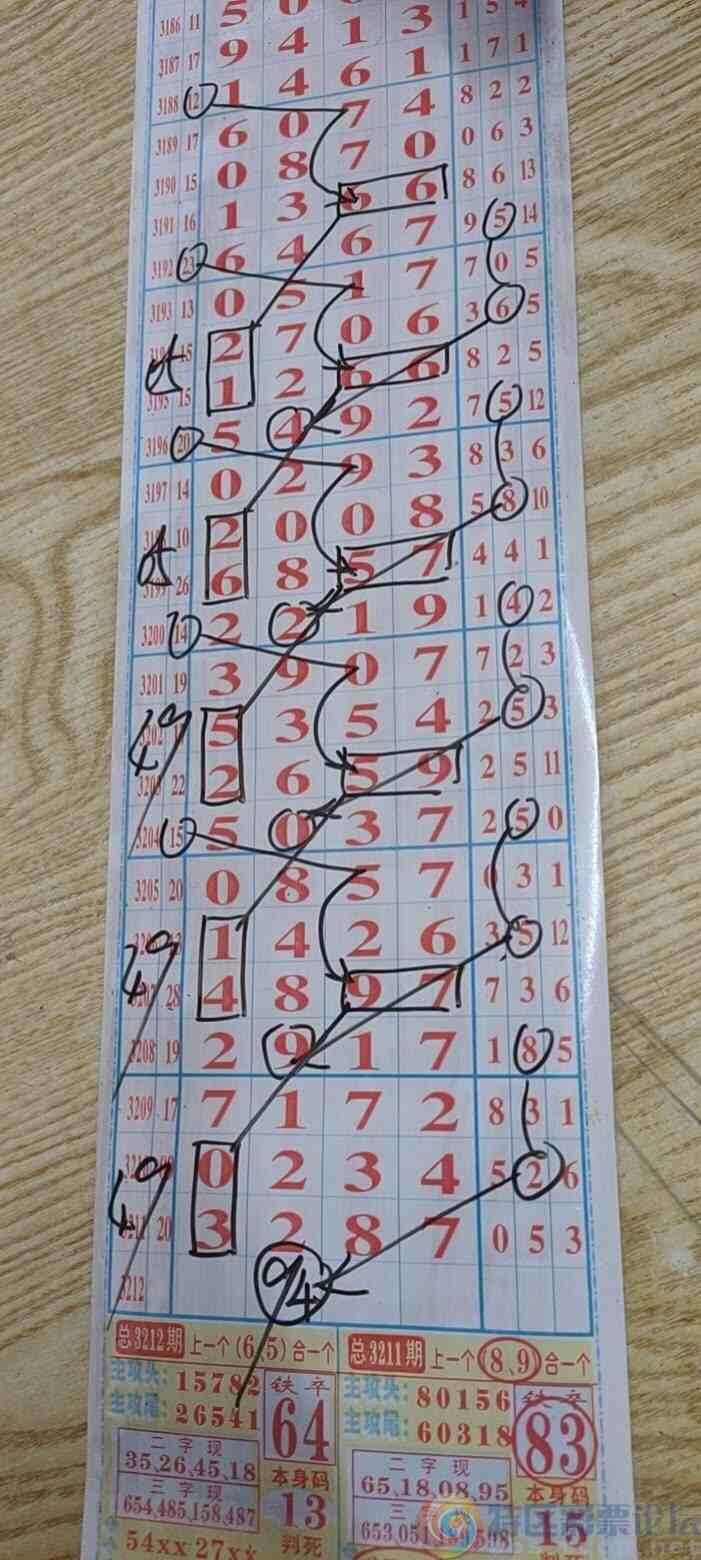 3186 11 5 0 1 3 1 5 4
3187 17 9 4 1 3 1 7 1
3188 12 1 4 6 1 8 2 2
3189 17 6 0 7 4 0 6 3
3190 15 0 8 7 0 8 6 13
3191 16 1 3 6 6 9 5 14
3192 23 6 4 6 7 7 0 5
3193 13 0 5 1 7 3 6 5
15 2 7 0 6 8 2 5
3195 15 1 2 6 6 7 5 12
3196 20 5 4 9 2 8 3 6
3197 14 0 2 9 3 5 8 10
10 2 0 0 8 4 4 1
3199 26 6 8 5 7 1 4 2
3200 14 2 2 1 9 7 2 3
3201 19 3 9 0 7 2 5 3
3202 5 3 5 4 2 5 11
3203 22 2 6 5 9 2 5 0
3204 15 5 0 3 7
3205 20 0 8 5 7 0 3 1
1 4 2 6 3 5 12
28 4 8 9 7 7 3 6
3208 19 2 9 1 7 1 8 5
3209 17 7 1 7 2 8 3 1
0 2 3 4 5 2 6
3211 20 3 2 8 7 0 5 3
3212 9/4
总3212期 上一个(6、5)合一个
主攻头: 15782
主攻尾: 26541
铁卒
64
二字现
35、26、45、18
三字现
654、485、158、487
本身码
13
判死
54xx 27xx
总3211期 上一个(8、9)合一个
主攻头: 80156
主攻尾: 60318
铁卒
83
二字现
65、18、08、95
三
本身码
15